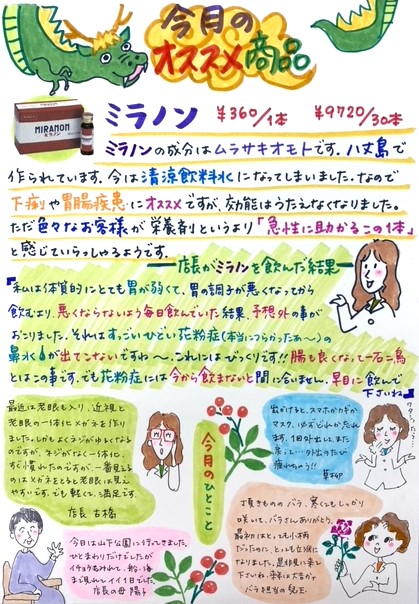 今月の
オススメ商品
MIRANON
ミラノン
ミラノン ¥360/1本 ¥9720/30本
ミラノンの成分はムラサキオモトです。八丈島で
作られています。今は清涼飲料水になってしまいました。なので
下痢や胃腸疾患にオススメですが、効能はうたえなくなりました。
ただ色々なお客様が栄養剤というより「急性に助かるこの1本」
と感じていらっしゃるようです。
店長がミラノンを飲んだ結果
『私は体質的にとても胃が弱くて、胃の調子が悪くなってから
飲むより、悪くならないよう毎日飲んでいた結果、予想外の事が
おこりました。それはすっごいひどい花粉症(本当につらかったあ〜)の
鼻水が出てこないですね〜。これにはびっくりです!!腸も良くなって一石二鳥
とはこの事です。でも花粉症には今から飲まないと間に合いません。早目に飲んで
下さいね』
最近は老眼も入り、近視と
老眼の一体化メガネを作り
ました。しかもよくネジがゆるくなる
のですが、ネジがなく一体化、
すぐ慣れたのですが、一番見える
のはメガネをとると老眼は見え
やすいです。でも軽くて、満足です。
店長 古橋
今月のひとこと
出かけると、スマホかカギか
マスク、必ずどれか忘れ
ます。1回外出して、また
戻って…外出のたび
疲れちゃう!!
草刈
今日は山下公園に行ってきました。
ひとまわりだけでしたが
イチョウもあわてて、船、海
まで見れてイイ1日でした
店長の母 陽子
丁頂きものの バラ、寒くてもしっかり
咲いて、バラさんありがとう。
最初はとっても小柄
だったのに、とっても立派に
なりました。是非見に来て
下さいね。
バラ担当の兒玉